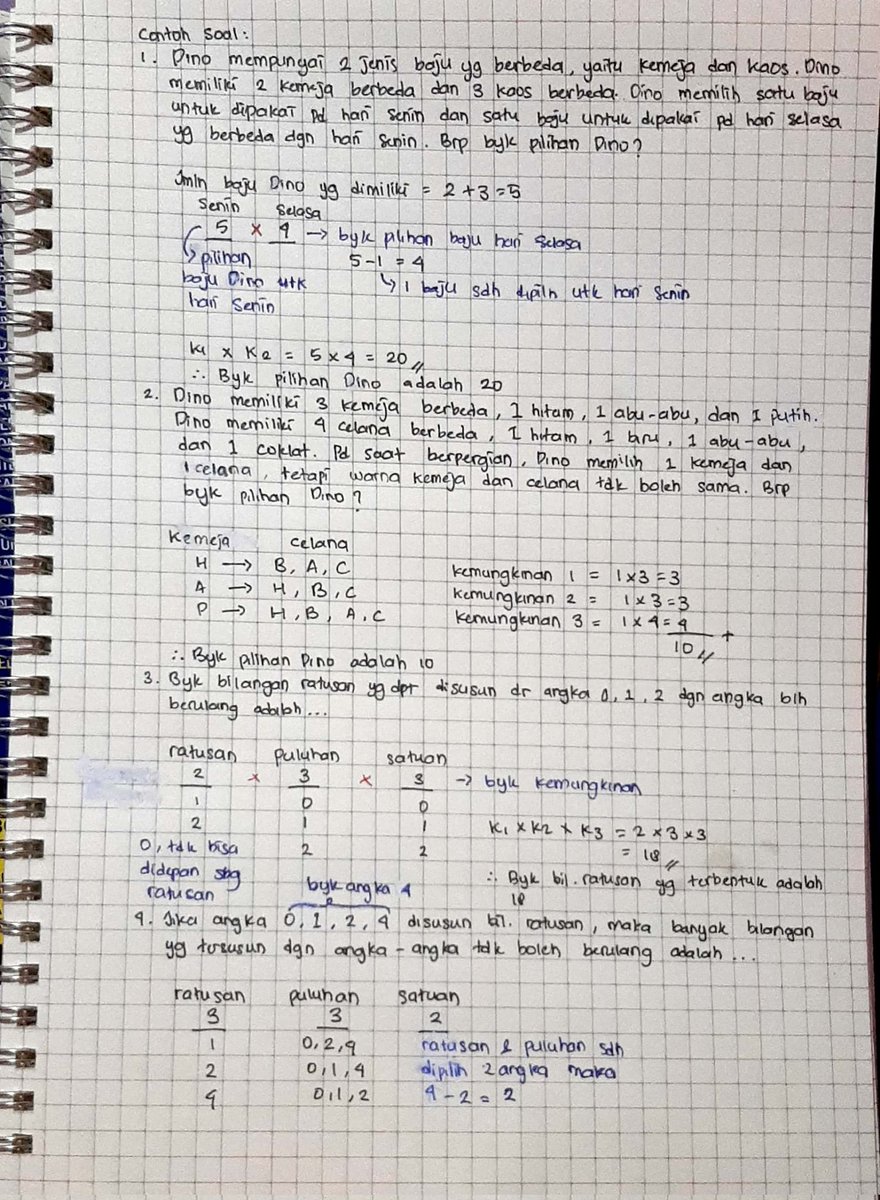 Contoh Soal:
1. Dino mempunyai 2 jenis baju yg berbeda, yaitu kemeja dan kaos. Dino
memiliki 2 kemeja berbeda dan 3 kaos berbeda. Dino memilih satu baju
untuk dipakai pd hari senin dan satu baju untuk dipakai pd hari selasa
yg berbeda dgn hari senin. Brp byk pilihan Dino?
Jmln baju Dino yg dimiliki = 2 + 3 = 5
Senin Selasa
5 × 4 → byk pilihan baju hari selasa
↳ pilihan 5 - 1 = 4
baju Dino utk ↳ 1 baju sdh dipiln utk hari senin
hari Senin
K1 × K2 = 5 × 4 = 20 //
∴ Byk pilihan Dino adalah 20
2. Dino memiliki 3 kemeja berbeda, 1 hitam, 1 abu-abu, dan 1 putih.
Dino memiliki 4 celana berbeda, 1 hitam, 1 biru, 1 abu-abu,
dan 1 coklat. Pd saat berpergian, Dino memilih 1 kemeja dan
1 celana, tetapi warna kemeja dan celana tdk boleh sama. Brp
byk pilihan Dino?
Kemeja celana
H → B, A, C kemungkinan 1 = 1 × 3 = 3
A → H, B, C kemungkinan 2 = 1 × 3 = 3
P → H, B, A, C kemungkinan 3 = 1 × 4 = 4 +
10 //
∴ Byk pilihan Dino adalah 10
3. Byk bilangan ratusan yg dpt disusun dr angka 0, 1, 2 dgn angka blh
berulang adalah...
ratusan puluhan satuan
2 × 3 × 3 → byk kemungkinan
1 0 0
2 1 1 K1 × K2 × K3 = 2 × 3 × 3
0, tdk bisa 2 2 = 18 //
didepan sbg
ratusan ∴ Byk bil. ratusan yg terbentuk adalah
18
byk angka 4
4. Jika angka 0, 1, 2, 4 disusun bil. ratusan, maka banyak bilangan
yg tersusun dgn angka-angka tdk boleh berulang adalah ...
ratusan puluhan satuan
3 3 2
1 0, 2, 4 ratusan & puluhan sdh
2 0, 1, 4 dipilih 2 angka maka
4 0, 1, 2 4 - 2 = 2